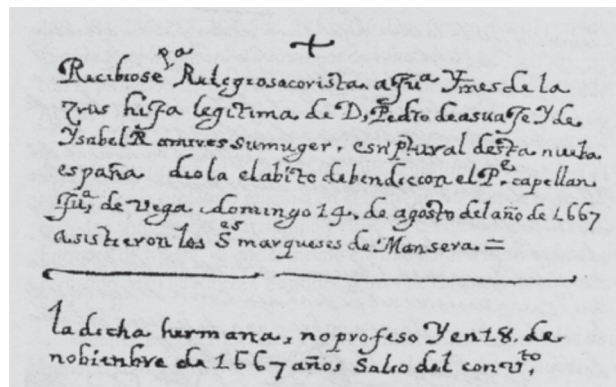 ✝
Recibiose pa Relegiosa corista a Jua Ynes de la
Crus hija legitima de D, Pedro de asuaje Y de
Ysabel Ramires su muger. es nptural desta nueba
españa diola el abito de bendiccion el Pe. capellan
Jua. de Vega domingo 14, de agosto del año de 1667
asistieron los Ses marqueses de Mansera. =
la dicha hermana, no profeso Y en 18. de
nobienbre de 1667 años Salio del convto.